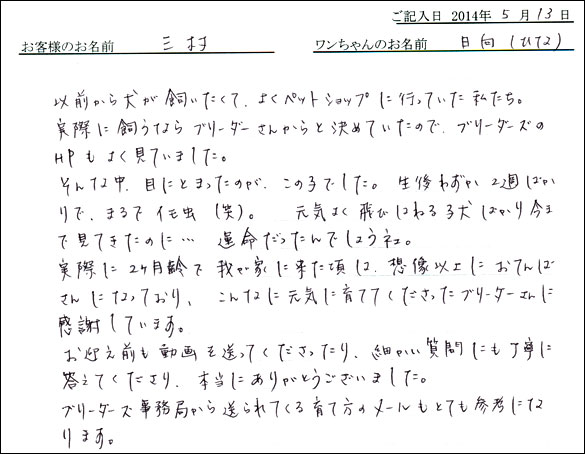 ご記入日 2014年 5 月 13 日
お客様のお名前 三村 ワンちゃんのお名前 日向(ひな)
以前から犬が飼いたくて、よくペットショップに行っていた私たち。
実際に飼うならブリーダーさんからと決めていたので、ブリーダーズの
HPもよく見ていました。
そんな中、目にとまったのが、この子でした。 生後わずか2週ばか
りで、まるでイモ虫(笑)。 元気よく飛びはねる子犬ばかり今ま
で見てきたのに… 運命だったんでしょうネ。
実際に2ヶ月齢で我が家に来た頃は、想像以上におてんば
さんになっており、こんなに元気に育ててくださったブリーダーさんに
感謝しています。
お迎え前も動画を送ってくださったり、細かい質問にも丁寧に
答えてくださり、本当にありがとうございました。
ブリーダーズ事務局から送られてくる育て方のメールもとても参考にな
ります。